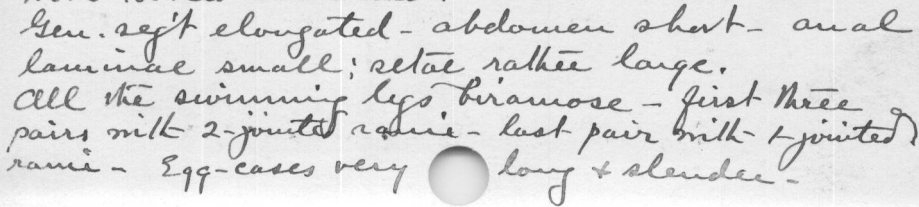 Gen. seg't elongated - abdomen short - anal
laminae small; setae rather large.
All the swimming legs biramose - first three
pairs with 2-jointed rami - last pair with 1-jointed
rami - Egg-cases very long & slender -